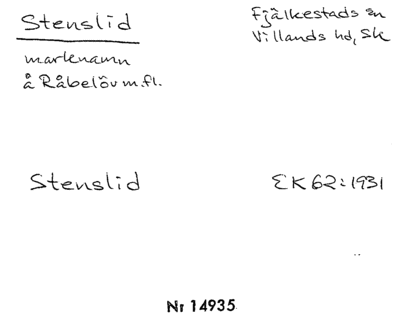 Stenslid
Fjälkestads sn
Villands hd, Sk
marknamn
å Råbelöv m.fl.
Stenslid
EK 62:1931
Nr 14935